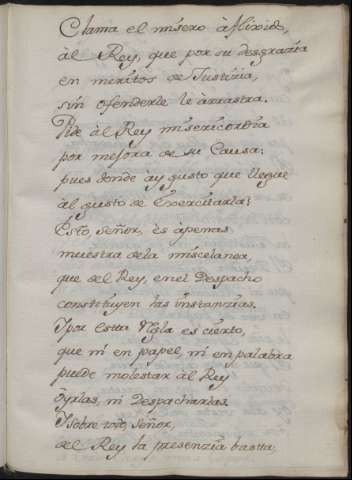 Clama el misero àflixido,
àl Rey, que por su desgrazia
en meritos de Justizia,
sin ofenderle le àrrastra.
Pide àl Rey misericordia
por mejora de su Causa:
pues donde ày gusto que llegue
àl gusto de Exercitarla?
Esto, Señor, ès àpenas
muestra dela miscelanea,
que del Rey, enel Despacho
constituyen las instanzias.
Ypor esta Regla es cierto,
que ni en papel, ni en palabra
puede molestar àl Rey
oyrlas, ni Despacharlas.
Ysobre todo, Señor,
del Rey la presenzia basta,